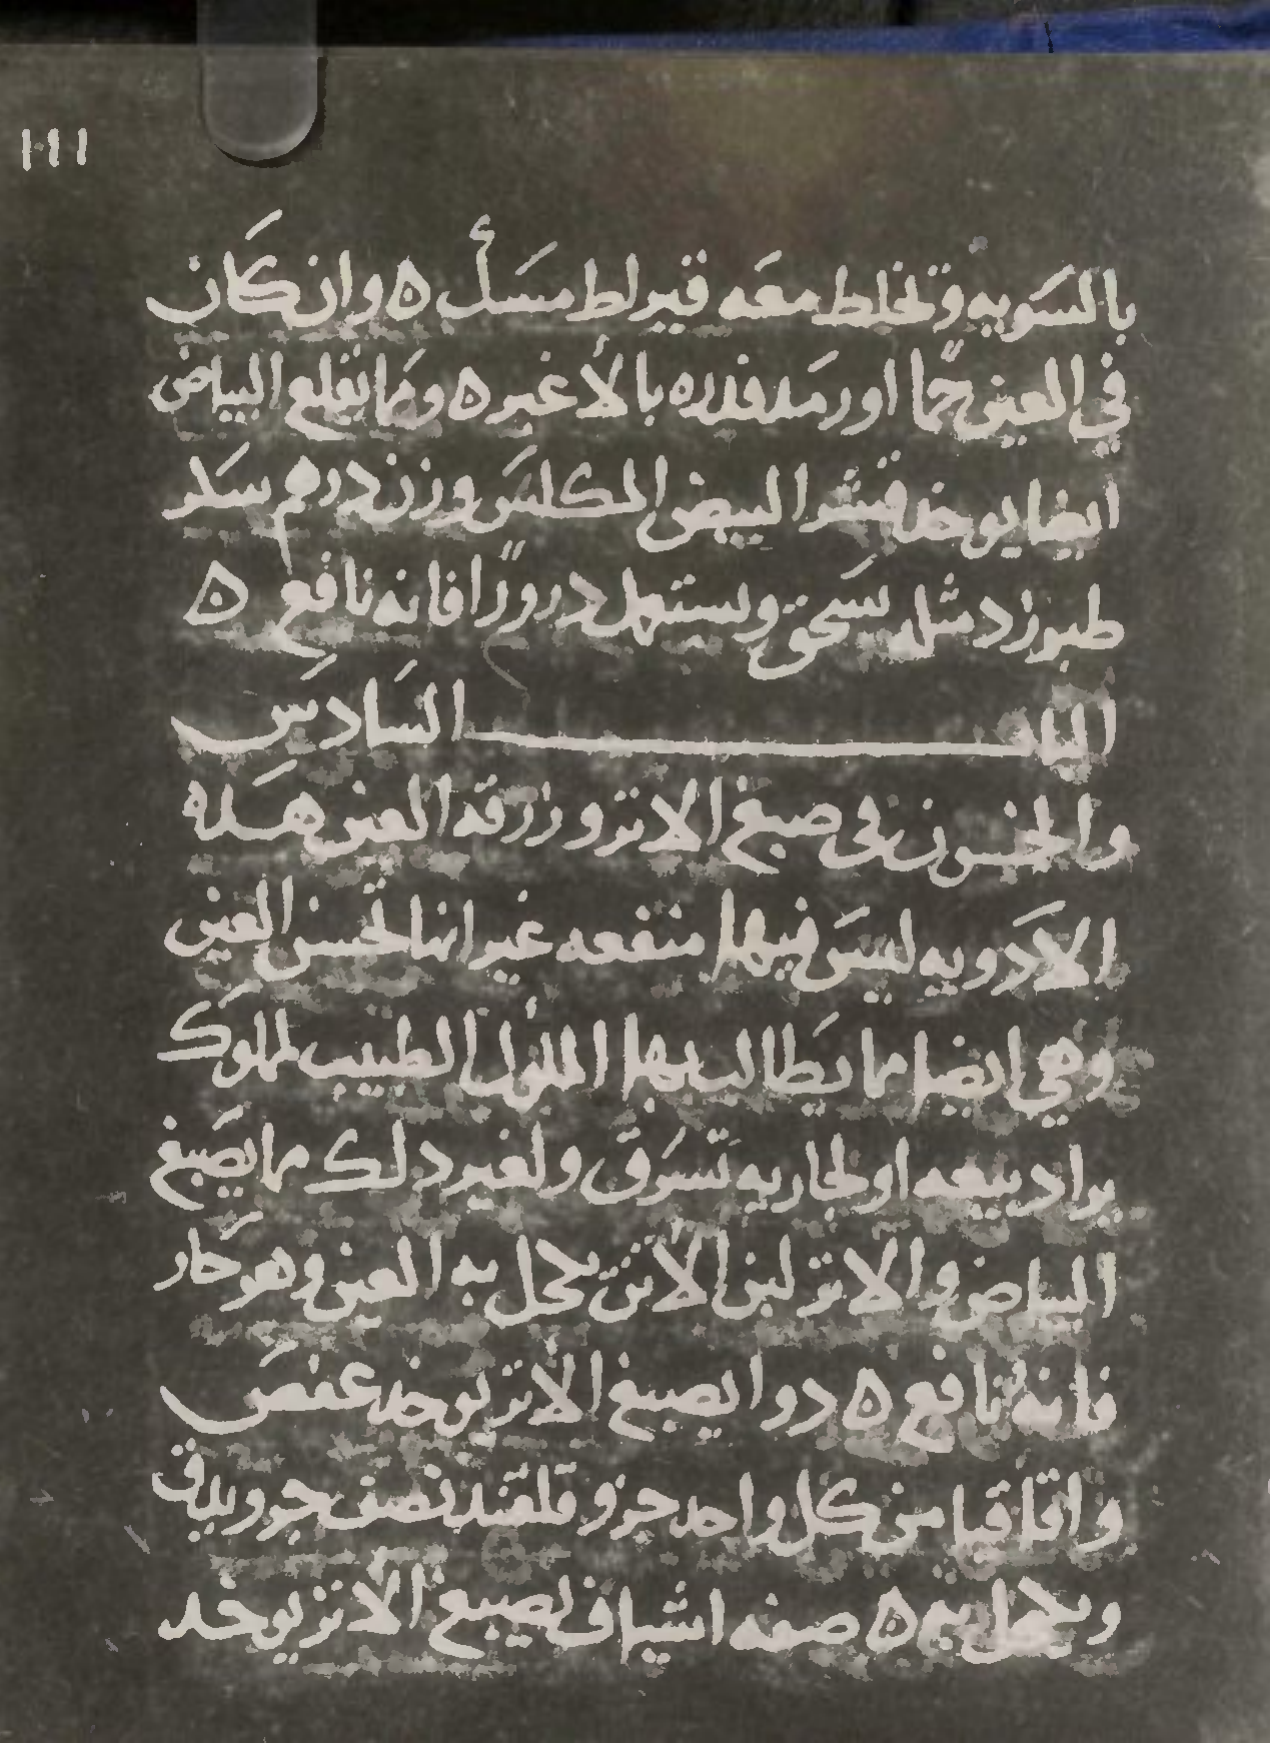 ١٠١١
بالسويه وتخلط معه قيراط مسك ه وان كان
في العين حما او رمد فدره بالاغبره ومما يقلع البياض
ايضا يوخذ قشر البيض المكلس وزن درهم سكر
طبرزد مثله يسحق ويستعمل درورًا فانه نافع ه
الباب السادس
والخمسون في صبغ الاثر وزرقه العين هذه
الادويه ليس فيها منفعه غير انها تحسن العين
وهي ايضا مما يطالب بها الملوك الطبيب لمملوك
يراد بيعه او لجاريه تسرق ولغير دلك مما يصبغ
البياض والاثر لبن الاتن تكحل به العين وهو حار
فانه نافع ه دوا يصبغ الاثر يوخذ عفص
واقاقيا من كل واحد جزو قلقند نصف جزو يداف
ويكحل به ه صفه اشياف لصبغ الاثر يوخد